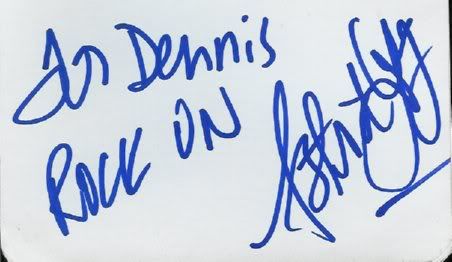 To Dennis
ROCK ON